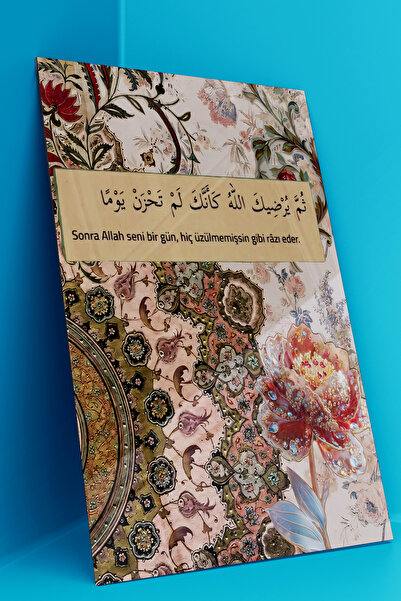 ثُمَّ يُرْضِيكَ اللّٰهُ كَأَنَّكَ لَمْ تَحْزَنْ يَوْمًا
Sonra Allah seni bir gün, hiç üzülmemişsin gibi râzı eder.